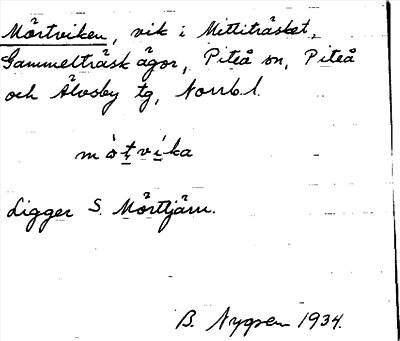 Mörtviken, vik i Mittiträsket,
Gammelträsk ägor, Piteå sn, Piteå
och Älvsby tg, Norrb. l.
mö̀tvíka
Ligger S. Mörttjärn.
B. Nygren 1934.